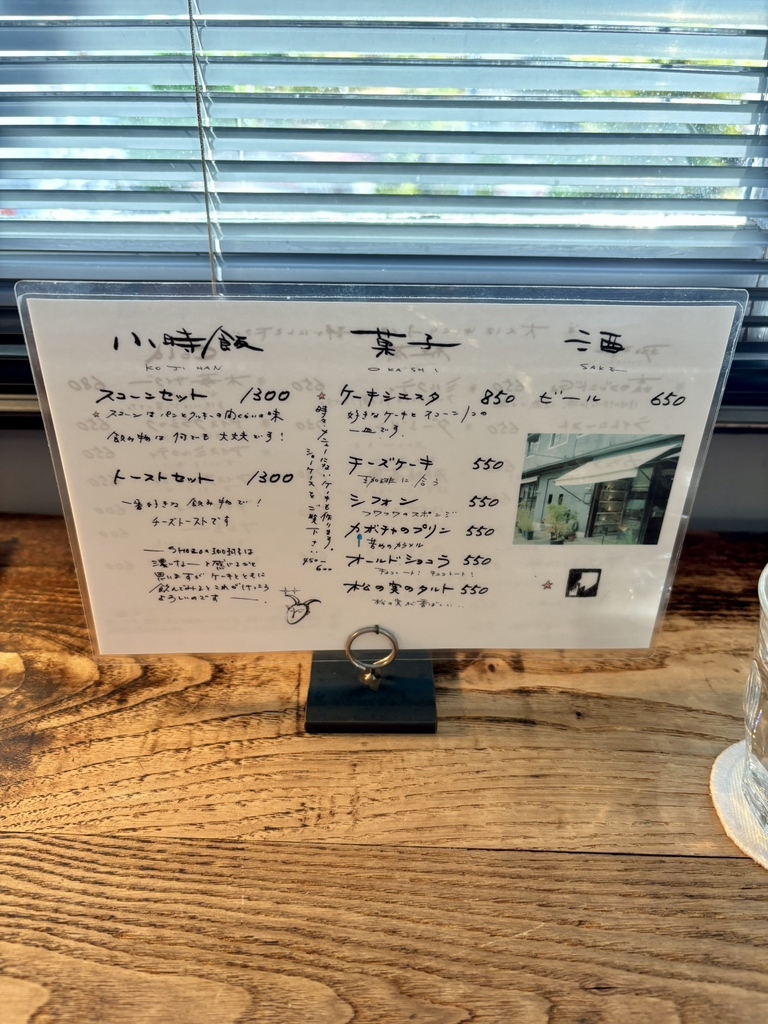 小時飯
KOJI HAN
スコーンセット 1300
スコーンはパンとクッキーの間くらいの味
飲み物は何でも大丈夫です!
トーストセット 1300
一番好きな飲み物で!
チーズトーストです
思いますがケーキとともに
よろしいのです
菓子
OKASHI
ケーキシエスタ 850
好きなケーキとスコーン1つの
一皿です.
チーズケーキ 550
珈琲に合う
シフォン 550
フワフワのスポンジ
カボチャのプリン 550
苦めのカラメル
オールドショコラ 550
チョコレート! チョコレート!
松の実のタルト 550
松の実が香ばしい...
時々メニューにないケーキも作ります。
ショーケースをご覧下さい。
450〜
600
酒
SAKE
ビール 650